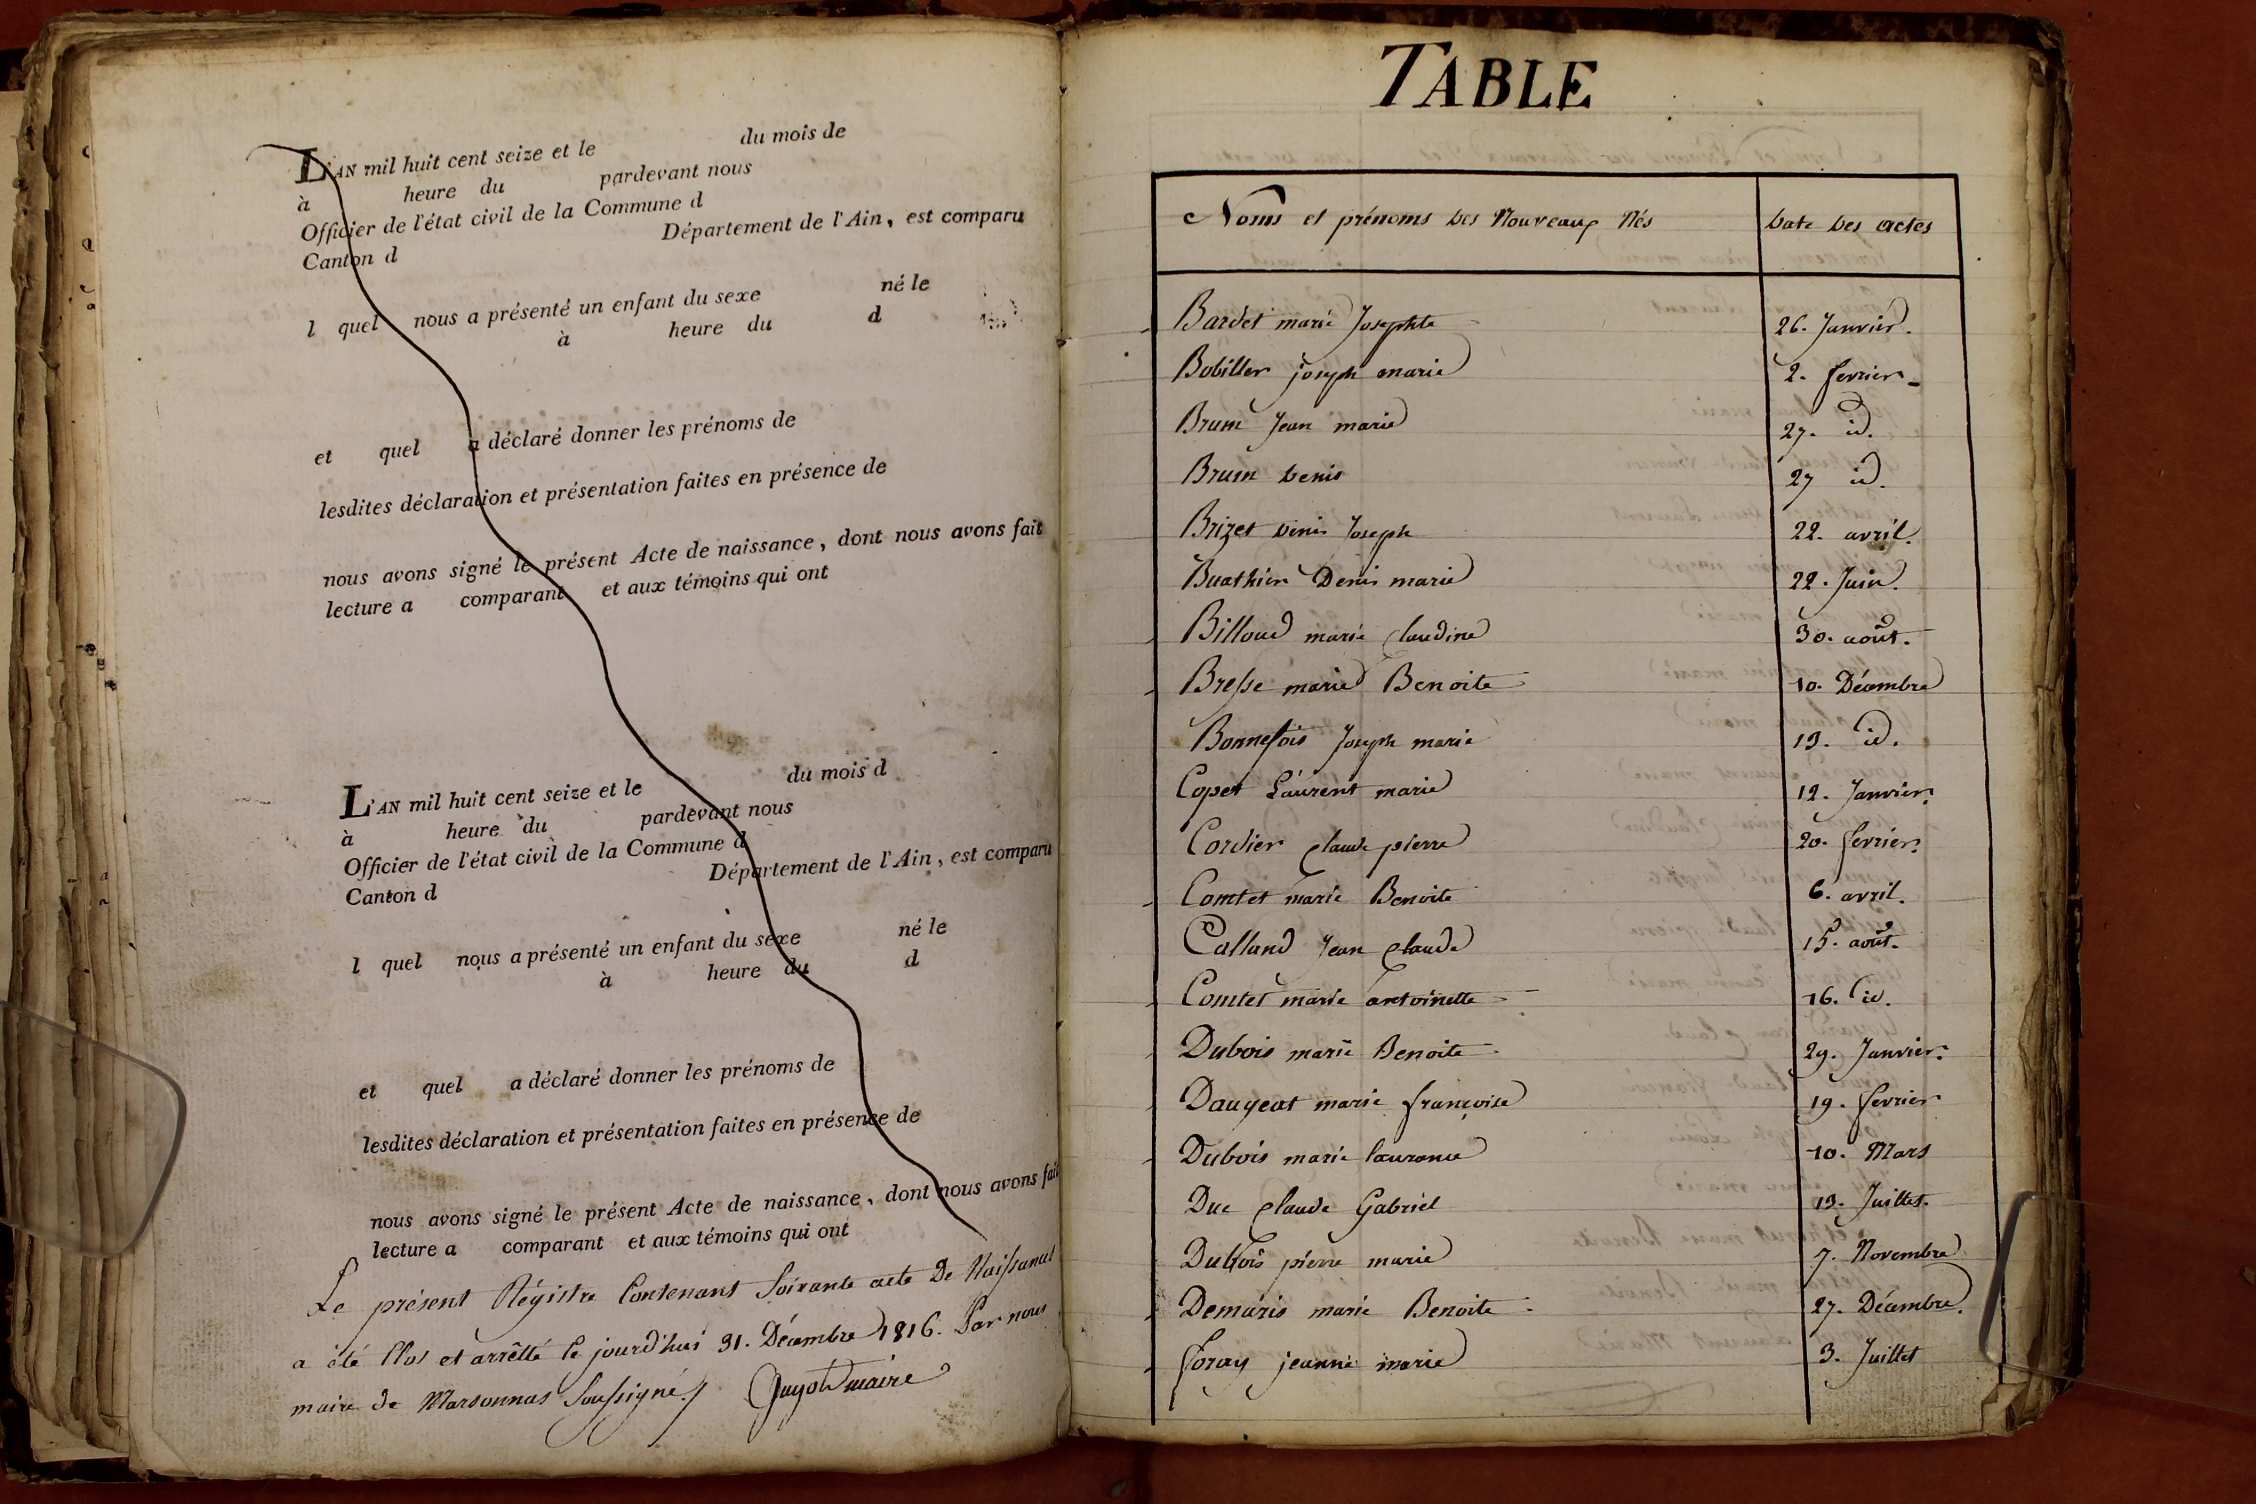 L'AN mil huit cent seize et le du mois de
à heure du pardevant nous
Officier de l'état civil de la Commune d
Canton d Département de l'Ain, est comparu
l quel nous a présenté un enfant du sexe né le
à heure du d
et quel a déclaré donner les prénoms de
lesdites déclaration et présentation faites en présence de
nous avons signé le présent Acte de naissance, dont nous avons fait
lecture a comparant et aux témoins qui ont
L'AN mil huit cent seize et le du mois d
à heure du pardevant nous
Officier de l'état civil de la Commune d
Canton d Département de l'Ain, est comparu
l quel nous a présenté un enfant du sexe né le
à heure du d
et quel a déclaré donner les prénoms de
lesdites déclaration et présentation faites en présence de
nous avons signé le présent Acte de naissance, dont nous avons fait
lecture a comparant et aux témoins qui ont
Le présent Régistre Contenant Soixante acte De Naissances
a été Clos et arrêtté le jourd'hui 31. Décembre 1816. Par nous
maire de Marsonnas Soussigné Guyot maire
TABLE
Noms et prénoms des Nouveaux Nés date des actes
Bardet marie Josephte 26. Janvier.
Bobiller joseph marie 2. fevrier
Brum Jean marie 27. id.
Brum denis 27 id.
Brizet denis Joseph 22. avril.
Buathier Denis marie 22. Juin.
Billoud marie Claudine 30. août.
Bresse marie Benoite 10. Décembre
Bonnefois Joseph marie 13. id.
Copet Laurent marie 12. Janvier.
Cordier Claude pierre 20. fevrier.
Comtet marie Benoite 6. avril.
Calland Jean Claude 15. août.
Comtet marie antoinette 16. id.
Dubois marie Benoite 29. Janvier.
Daujeat marie françoise 19. fevrier
Dubois marie laurence 10. Mars
Duc Claude Gabriel 13. Juillet.
Dubois pierre marie 7. Novembre
Demaris marie Benoite 27. Décembre.
foray jeanne marie 3. Juillet